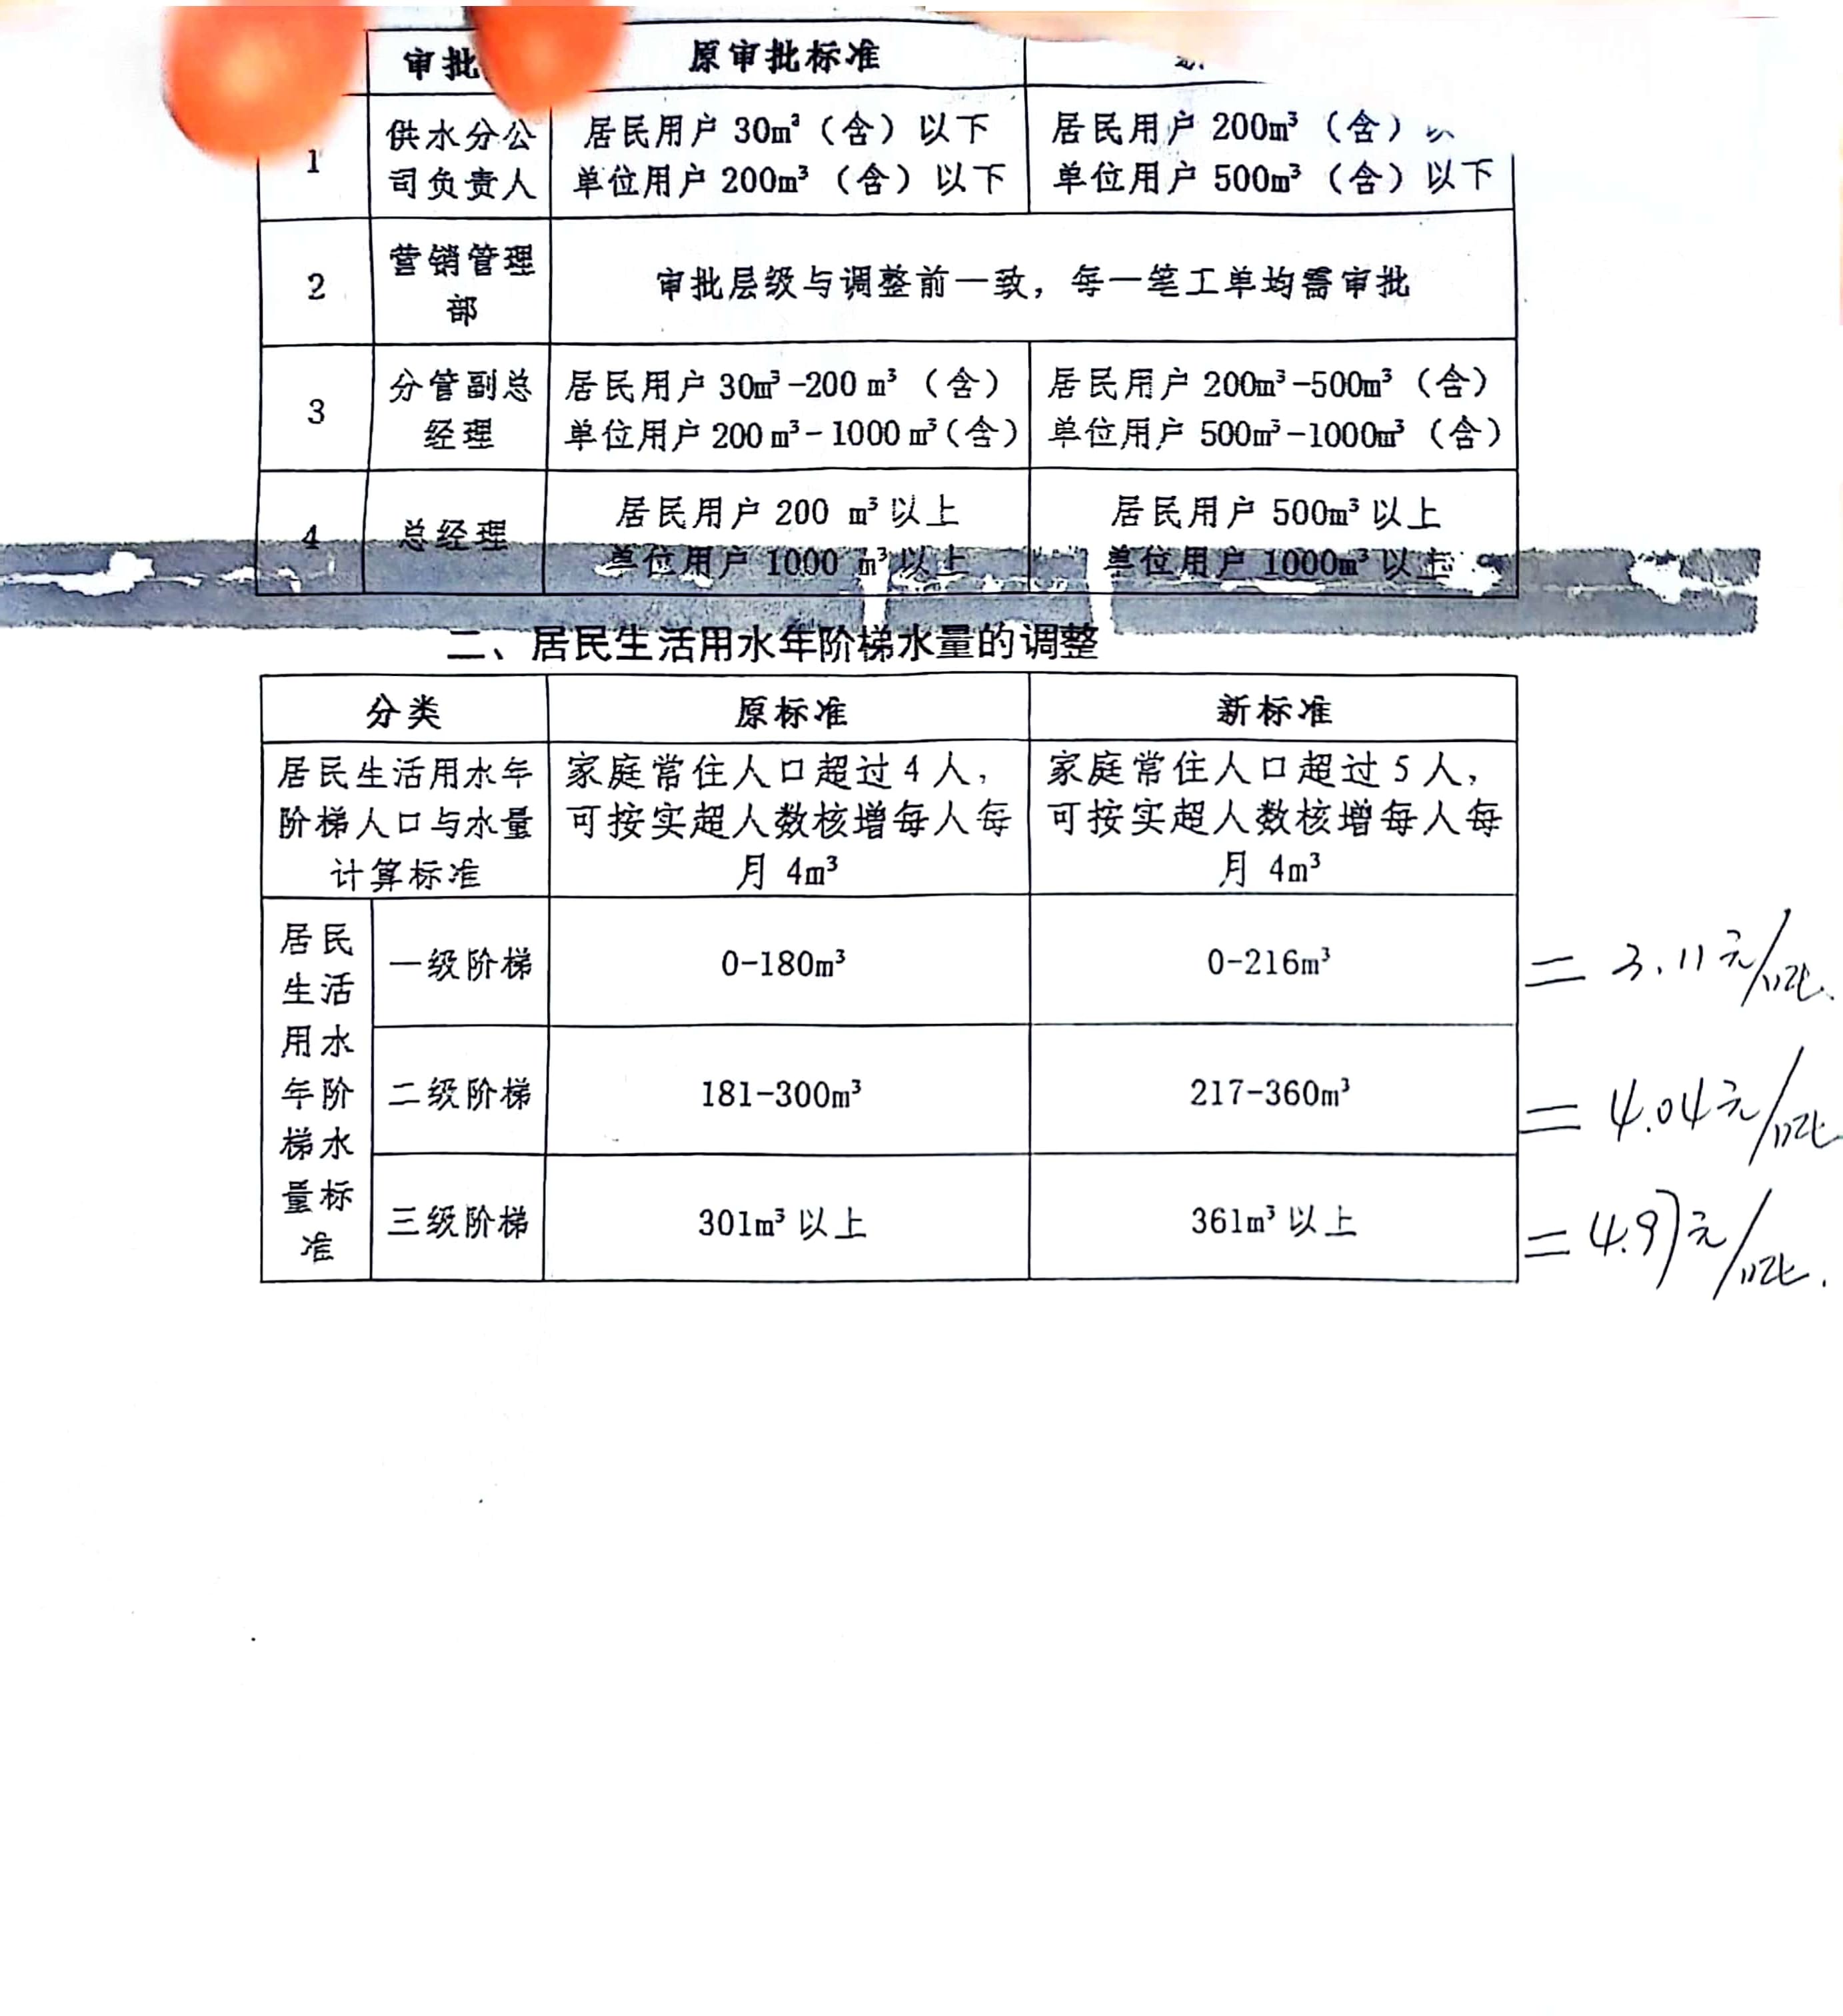 审批
原审批标准
1
供水分公
司负责人
居民用户 30m³（含）以下
单位用户 200m³（含）以下
居民用户 200m³（含）
单位用户 500m³（含）以下
2
营销管理
部
审批层级与调整前一致，每一笔工单均需审批
3
分管副总
经理
居民用户 30m³-200 m³（含）
单位用户 200 m³-1000 m³（含）
居民用户 200m³-500m³（含）
单位用户 500m³-1000m³（含）
4
总经理
居民用户 200 m³以上
单位用户 1000 m³以上
居民用户 500m³以上
单位用户 1000m³以上
二、居民生活用水年阶梯水量的调整
分类
原标准
新标准
居民生活用水年
阶梯人口与水量
计算标准
家庭常住人口超过 4 人，
可按实超人数核增每人每
月 4m³
家庭常住人口超过 5 人，
可按实超人数核增每人每
月 4m³
居民
生活
用水
年阶
梯水
量标
准
一级阶梯
0-180m³
0-216m³
= 3.11元/吨.
二级阶梯
181-300m³
217-360m³
= 4.04元/吨
三级阶梯
301m³以上
361m³以上
= 4.97元/吨.